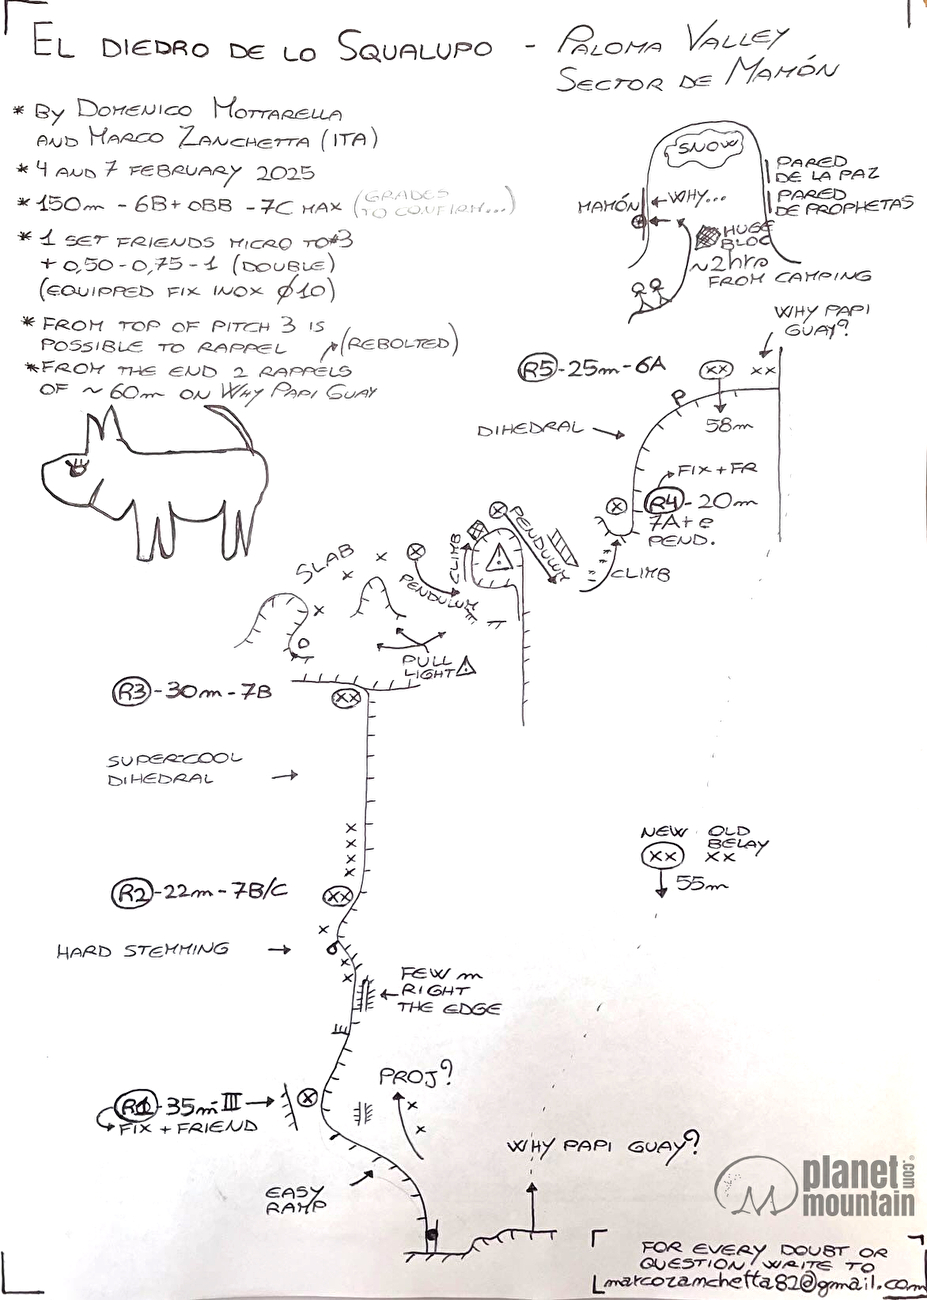 EL DIEDRO DE LO SQUALUPO - PALOMA VALLEY
SECTOR DE MAMÓN
* BY DOMENICO MOTTARELLA
AND MARCO ZANCHETTA (ITA)
* 4 AND 7 FEBRUARY 2025
* 150m - 6B+ OBB - 7C MAX (GRADES
TO CONFIRM...)
* 1 SET FRIENDS MICRO TO #3
+ 0,50 - 0,75 - 1 (DOUBLE)
(EQUIPPED FIX INOX Ø10)
* FROM TOP OF PITCH 3 IS
POSSIBLE TO RAPPEL
(REBOLTED)
* FROM THE END 2 RAPPELS
OF ~ 60m ON WHY PAPI GUAY
SNOW
PARED
DE LA PAZ
PARED
DE PROPHETAS
MAMÓN
WHY...
HUGE
BLOC
~2hrs
FROM CAMPING
WHY PAPI
GUAY?
R5 - 25m - 6A
XX
XX
P
58m
DIHEDRAL
FIX + FR
R4 - 20m
7A+ e
PEND.
PENDULUM
CLIMB
SLAB
PENDULUM
CLIMB
PULL
LIGHT
R3 - 30m - 7B
XX
SUPERCOOL
DIHEDRAL
NEW
XX
OLD
BELAY
XX
55m
R2 - 22m - 7B/C
XX
HARD STEMMING
FEW m
RIGHT
THE EDGE
PROJ?
R1 - 35m - III
FIX + FRIEND
WHY PAPI GUAY?
EASY
RAMP
planet
mountain
.com
FOR EVERY DOUBT OR
QUESTION WRITE TO
marcozamchetta82@gmail.com